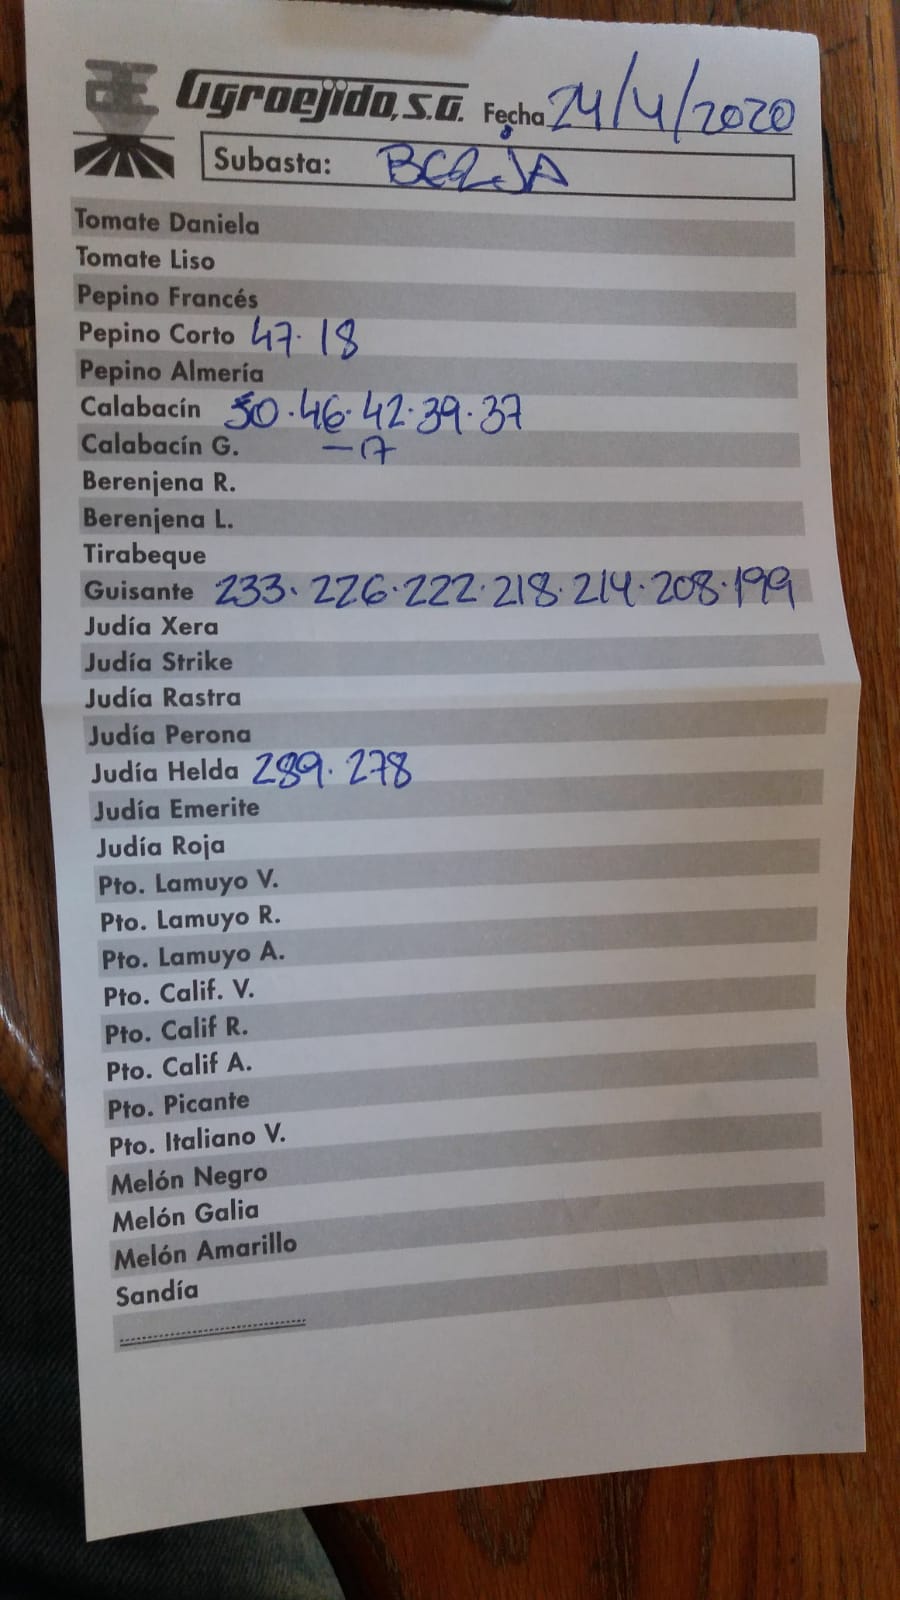 Agroejido, S.A. Fecha 24/4/2020
Subasta: BERJA
Tomate Daniela
Tomate Liso
Pepino Francés
Pepino Corto 47. 18
Pepino Almería
Calabacín 50.46.42.39.37
Calabacín G. —17
Berenjena R.
Berenjena L.
Tirabeque
Guisante 233.226.222.218.214.208.199
Judía Xera
Judía Strike
Judía Rastra
Judía Perona
Judía Helda 289.278
Judía Emerite
Judía Roja
Pto. Lamuyo V.
Pto. Lamuyo R.
Pto. Lamuyo A.
Pto. Calif. V.
Pto. Calif R.
Pto. Calif A.
Pto. Picante
Pto. Italiano V.
Melón Negro
Melón Galia
Melón Amarillo
Sandía